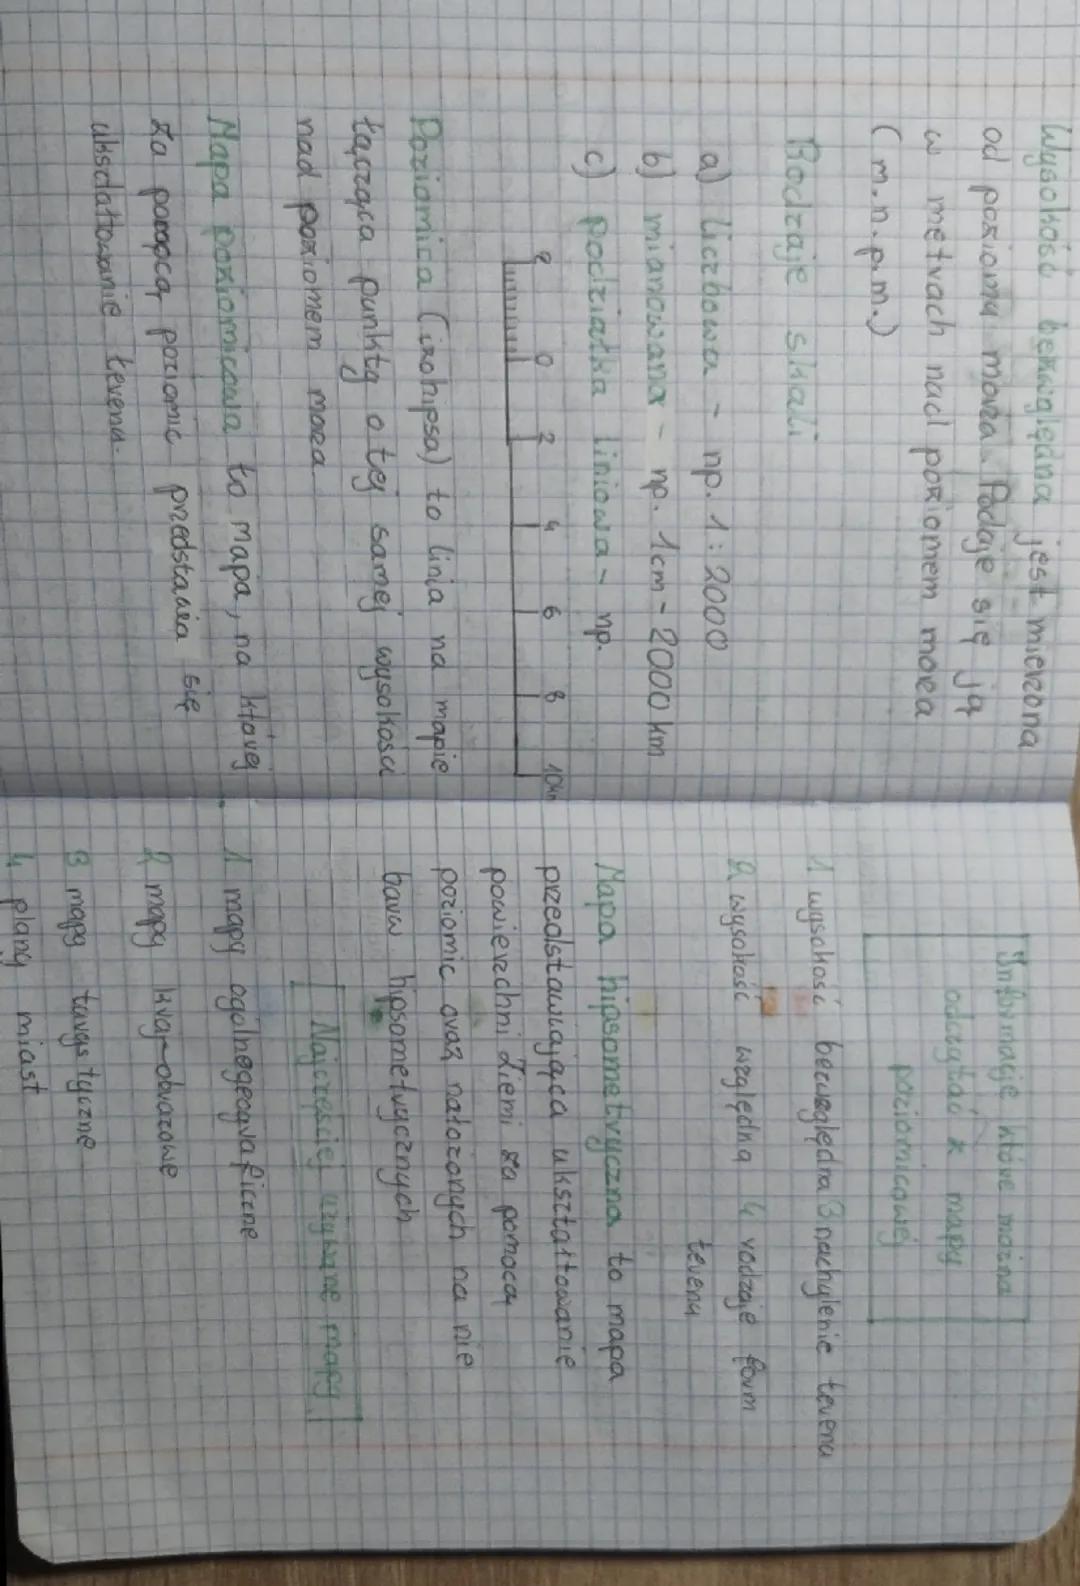 Wysokość bezwzględna jest mierzona
od poziomu morza. Podaje się ją
w metrach nad poziomem morza
(m.n.p.m.)
Rodzaje skali
a) liczbowa - np. 1:2000
b) mianowana - np. 1cm - 2000 km
c) podziałka liniowa - np.
2 0 2 4 6 8 10km
Poziomica (izohipsa) to linia na mapie
łącząca punkty o tej samej wysokości
nad poziomem morza
Mapa poziomicowa to mapa, na której
za pomocą poziomic przedstawia się
uksdałtowanie terenu.
Informacje które można
odczytać z mapy
poziomicowej
1 wysokość bezwzględna 3 nachylenie terenu
2 wysokość względna 4 rodzaje form
terenu
Mapa hipsometryczna to mapa
przedstawiająca ukształtowanie
powierzchni Ziemi za pomocą
poziomic oraz nałożonych na nie
barw hipsometrycznych
Najczęściej używane mapy
1 mapy ogólnogeograficzne
2 mapy krajobrazowe
3 mapy turystyczne
4 plany miast